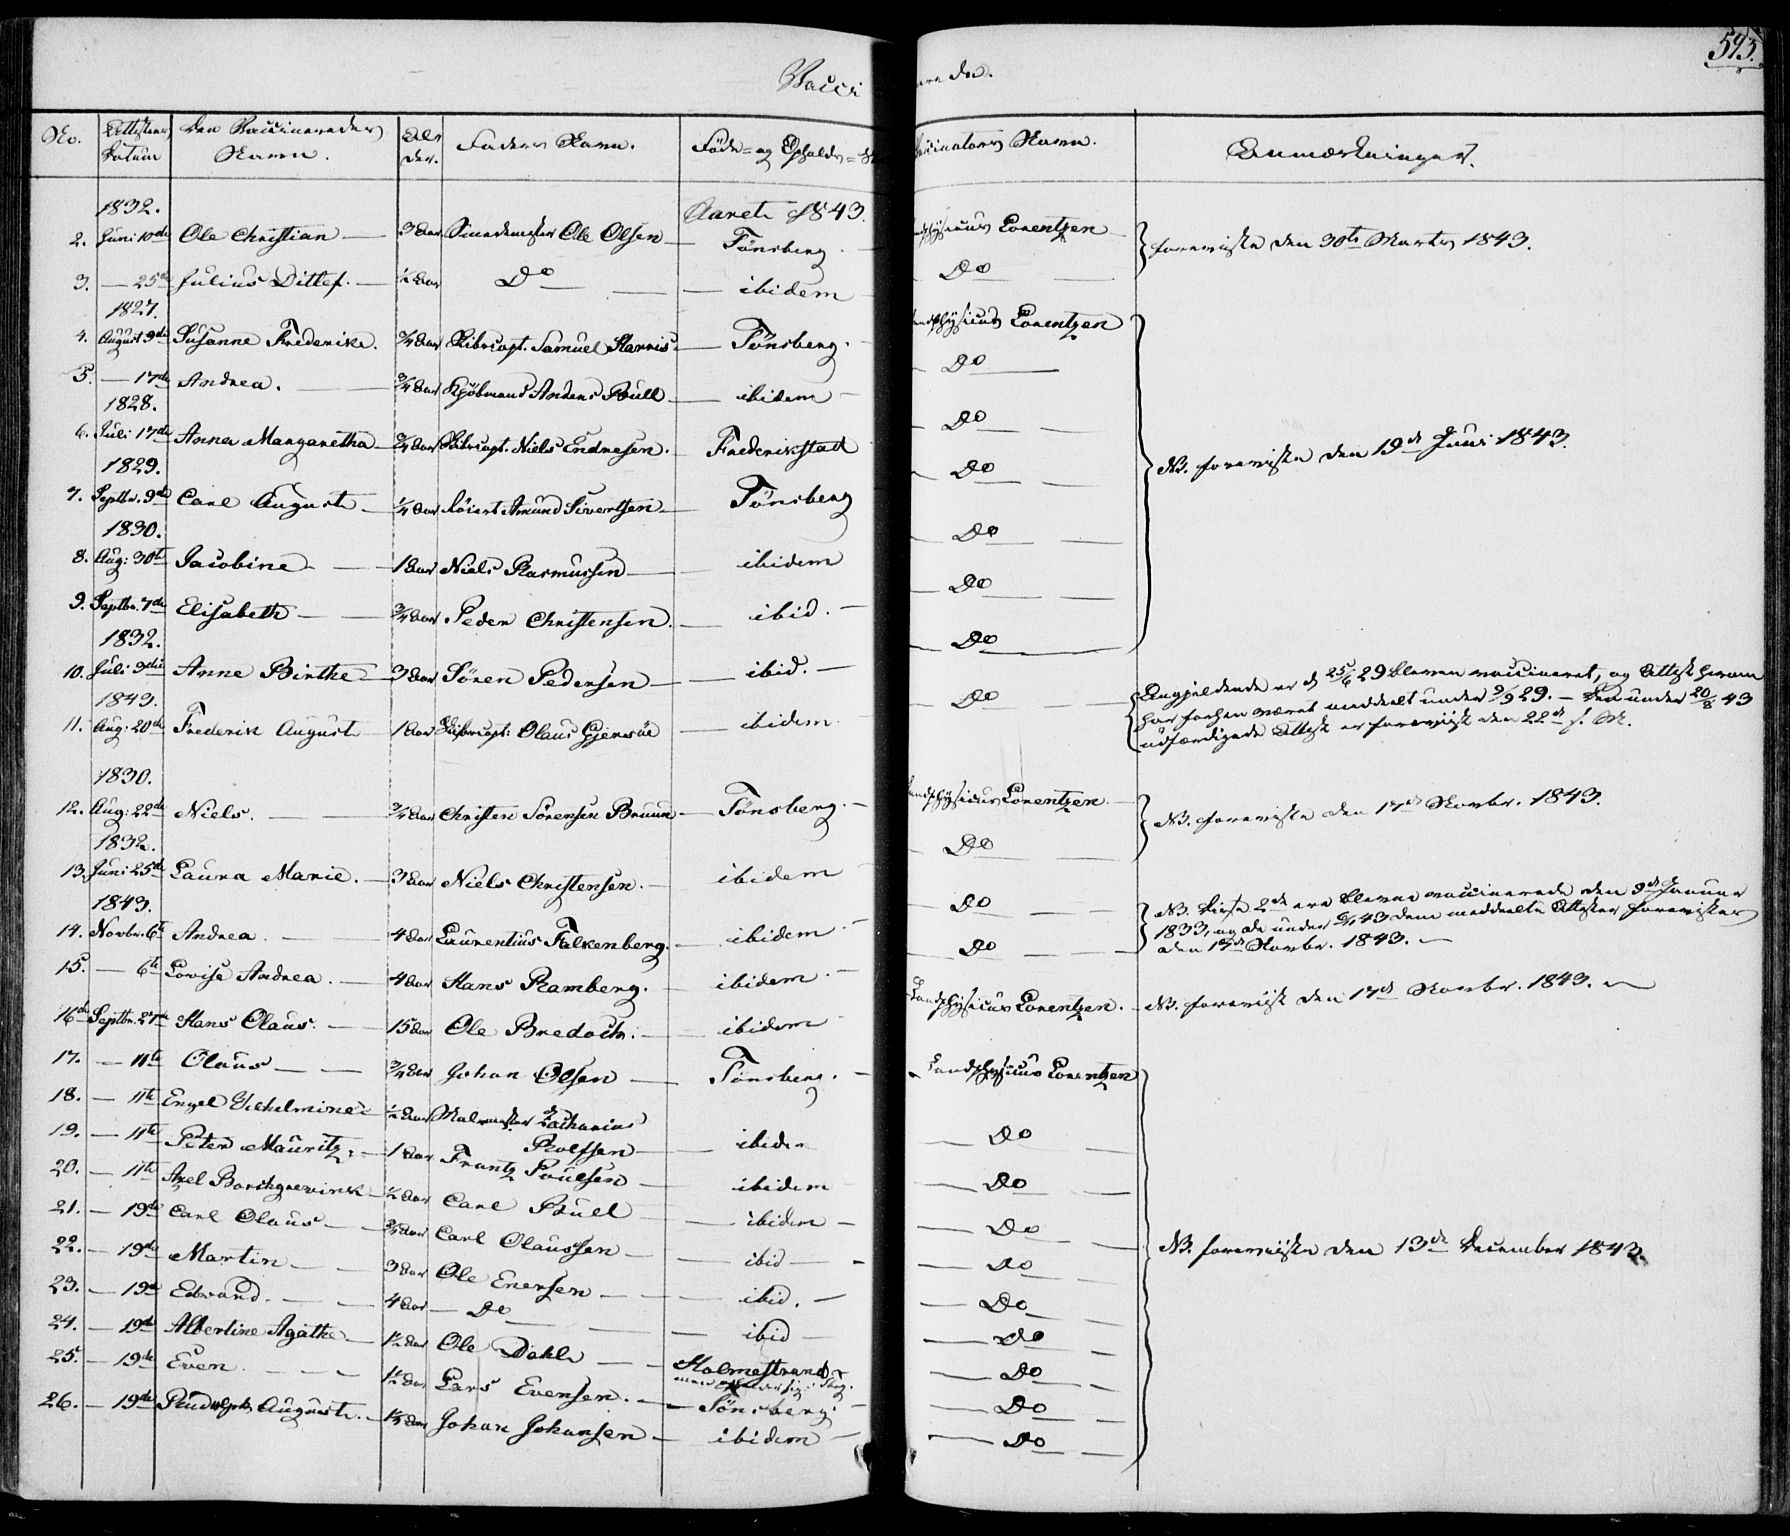 593.
Vacci nerede.
No. Attestens Datum Den Vaccineredes Navn. Alder. Faders Navn. Føde- og Opholds- Vaccinators Navn. Anmærkninger.
Aaret 1843.
1832.
2. Juni 10de Ole Christian 3 Aar Ole Olsen Tønsberg Landphysicus Lorentzen foreviste den 30te Marts 1843.
3. 25de Julius Ditlef. ½ Aar Do ibidem Do
1827.
4. August 9de Susanne Frederike. ¾ Aar Skibscapt. Samuel Harris Tønsberg. Landphysicus Lorentzen
5. 17de Andrea. ¾ Aar Kjøbmand Anders Bull ibidem Do
1828.
6. Juli 17de Anna Margaretha ¾ Aar Skibscapt. Niels Endresen. Frederikstad Do NB. foreviste den 19de Juni 1843.
1829.
7. Septbr. 9de Carl August ¼ Aar Amund Sivertsen Tønsberg Do
1830.
8. Aug: 30te Jacobine 1 Aar Niels Rasmussen ibidem Do
9. Septbr. 7de Elisabeth ¾ Aar Peder Christensen. ibid. Do
1832.
10. Juli 9de Anne Birthe 3 Aar Søren Pedersen ibid. Do
1843.
11. Aug: 20de Frederik August 1 Aar Skibscapt: Olaus Gjersøe ibidem Do Angjeldende er d. 25/6 29 bleven vaccineret, og Attest herom
har forhen været meddelt under 9/9 29. – Den under 20/8 43
udfærdigede Attest er foreviist den 22de s. M.
1830.
12. Aug: 22de Niels. ¾ Aar Christen Sørensen Bruun Tønsberg. Landphysicus Lorentzen. NB. foreviste den 17de Novbr. 1843.
1832.
13. Juni 25de Laura Marie. 3 Aar Niels Christensen. ibidem Do
1843.
14. Novbr. 6te Andrea. 4 Aar Laurentius Falkenberg. ibidem Do NB. Disse 2de ere blevne vaccinerede den 9de Januar
1833, og de under 6/11 43 dem meddeelte Attester forevistes
den 17de Novbr. 1843.
15. 6te Lovise Andrea. 4 Aar Hans Ramberg. ibidem. Do
16de Septbr. 27de Hans Olaus. 15 Aar Ole Bredoch. ibidem Landphysicus Lorentzen. NB. foreviist den 17de Novbr. 1843.
17. 11te Olaus ¾ Aar Johan Olsen Tønsberg. Landphysicus Lorentzen
18. 11te Engel Vilhelmine ½ Aar Malermester Zacharias
Rolfsen ibidem Do
19. 11te Peter Mauritz. 1 Aar Frantz Poulsen ibidem Do
20. 11te Axel Borchgrevink ½ Aar Carl Bull ibidem Do
21. 19de Carl Olaus ¾ Aar Carl Olaussen ibid Do NB. foreviiste den 13de December 1843.
22. 19de Martin 3 Aar Ole Enersen ibid. Do
23. 19de Edvard. 4 Aar Do ibid Do
24. 19de Albertine Agathe 1½ Aar Ole Dahl Holmestrand Do
25. 19de Even 1½ Aar Lars Evensen. Tønsberg. Do
26. 19de Rudolph August. 1½ Aar Johan Johansen ibidem Do